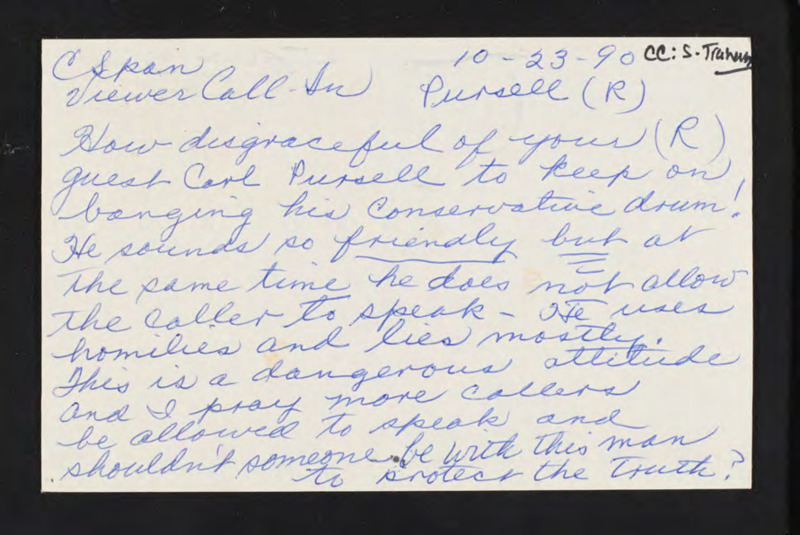 C Span 10-23-90 CC: S.
Viewer Call-In Pursell (R)
How disgraceful of your (R)
guest Carl Pursell to keep on
banging his conservative drum!
He sounds so friendly but at
the same time he does not allow
the caller to speak - He uses
homilies and lies mostly.
This is a dangerous attitude
and I pray more callers
be allowed to speak and
shouldn't someone be with this man
to protect the truth?